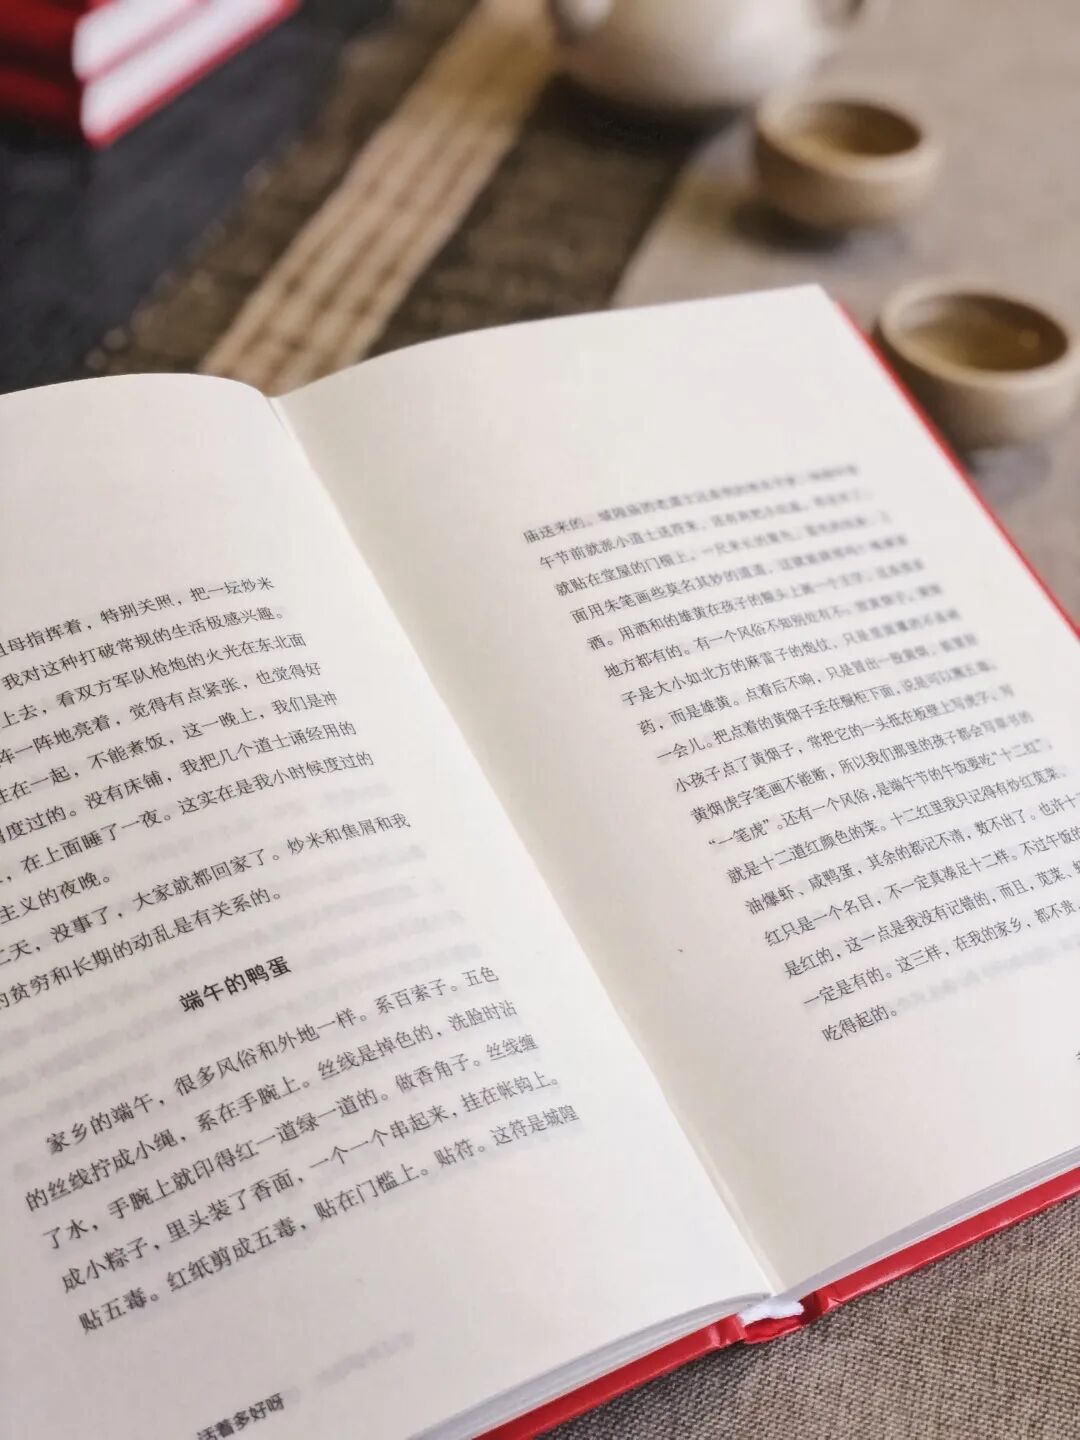 祖母指挥着，特别关照，把一坛炒米
我对这种打破常规的生活极感兴趣。
上去，看双方军队枪炮的火光在东北面
阵一阵地亮着，觉得有点紧张，也觉得好
住在一起，不能煮饭，这一晚上，我们是冲
屑度过的。没有床铺，我把几个道士诵经用的
，在上面睡了一夜。这实在是我小时候度过的
主义的夜晚。
二天，没事了，大家就都回家了。炒米和焦屑和我
的贫穷和长期的动乱是有关系的。
端午的鸭蛋
家乡的端午，很多风俗和外地一样。系百索子。五色
的丝线拧成小绳，系在手腕上。丝线是掉色的，洗脸时沾
了水，手腕上就印得红一道绿一道的。做香角子。丝线缠
成小粽子，里头装了香面，一个一个串起来，挂在帐钩上。
贴五毒。红纸剪成五毒，贴在门槛上。贴符。这符是城隍
活着多好呀
庙送来的。城隍庙的老道士
午节前就派小道士送符来，还有两把小纸扇。
就贴在堂屋的门楣上。一尺来长的黄色、蓝色的纸条，
面用朱笔画些莫名其妙的道道，这就能辟邪吗？
酒。用酒和的雄黄在孩子的额头上画一个王字，这是很多
地方都有的。有一个风俗不知别处有不：放黄烟子。黄烟
子是大小如北方的麻雷子的炮仗，只是里面灌的不是硝
药，而是雄黄。点着后不响，只是冒出一股黄烟，能冒好
一会儿。把点着的黄烟子丢在橱柜下面，说是可以熏五毒。
小孩子点了黄烟子，常把它的一头抵在板壁上写虎字。写
黄烟虎字笔画不能断，所以我们那里的孩子都会写草书的
“一笔虎”。还有一个风俗，是端午节的午饭要吃“十二红”，
就是十二道红颜色的菜。十二红里我只记得有炒红苋菜、
油爆虾、咸鸭蛋，其余的都记不清，数不出了。也许十二
红只是一个名目，不一定真凑足十二样。不过午饭的
是红的，这一点是我没有记错的，而且，苋菜、
一定是有的。这三样，在我的家乡，都不贵，
吃得起的。